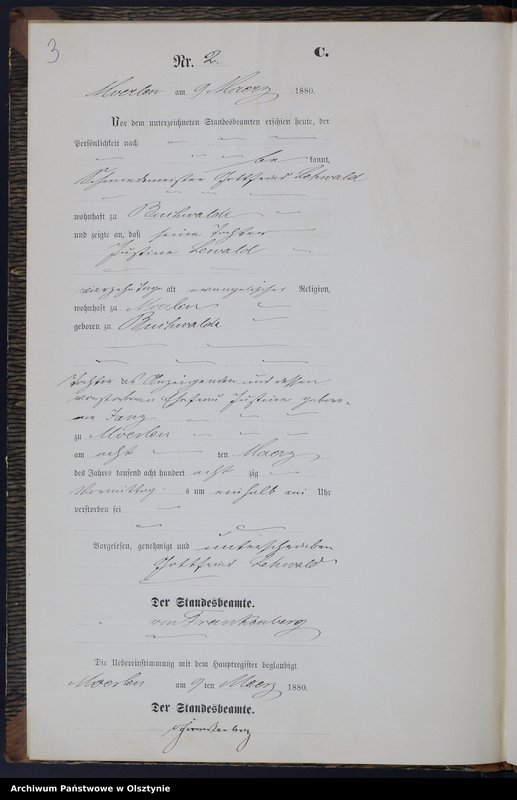 3
Nr. 2. C.
Moerlen am 9 Maerz 1880.
Vor dem unterzeichneten Standesbeamten erschien heute, der
Persönlichkeit nach
be kannt,
Schmiedemeister Gottfried Lehwald
wohnhaft zu Buchwalde
und zeigte an, daß seine Tochter
Justine Lewald
vierzehn Tage alt evangelischer Religion,
wohnhaft zu Moerlen
geboren zu Buchwalde
Tochter des Anzeigenden und dessen
verstorbenen Ehefrau Justine gebore-
ne
zu Moerlen
am acht ten Maerz
des Jahres tausend acht hundert acht zig
Vormittag s um einhalb ein Uhr
verstorben sei
Vorgelesen, genehmigt und unterschrieben
Gottfried Lehwald
Der Standesbeamte.
von Frankenberg
Die Uebereinstimmung mit dem Hauptregister beglaubigt.
Moerlen am 9 ten Maerz 1880.
Der Standesbeamte.
v Frankenberg
Archiwum Państwowe w Olsztynie